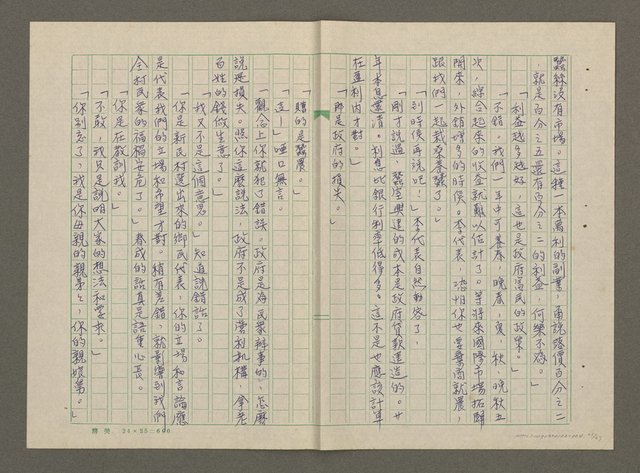 蠶絲沒有市場。這種一本萬利的副業，甭說蹧價百分之二
，就是百分之五還有百分之二的利益，何樂不為。」
「利益越多越好，這也是政府富民的政策。」
「不錯，我們一年中可養春，晚春，夏，秋，晚秋五
次，綜合起來的收益就難以估計了。等將來國際市場拓闢
開來，外銷增多的時候。李代表，恐怕你也要棄商就農，
跟我們一起栽桑養蠶了。」
「到時候再說吧。」李代表自然動容了，
「剛才說過，蠶室興建的成本是政府貸款建造的。廿
年本息還清。利息比銀行利率低得多。這不是也應該計算
在盈利內才對。」
「那是政府的損失。」
「賺的是蠶農。」
「這—」啞口無言。
「觀念上你就犯了錯誤。政府是為民眾辦事的，怎麼
說是損失。照你這麼說法，政府不是成了營利機構，拿老
百姓的錢做生意了。」
「我又不是這個意思。」知道說錯話了。
「你是新民村選出來的鄉民代表，你的立場和言論應
是代表我們的立場和希望才對。稍有差錯，就影響到我們
全村民眾的福禍安危了。」春成的話真是語重心長。
「你是在教訓我。」
「不敢，我只是說咱大家的想法和要求。」
「你別忘了，我是你母親的親弟弟，你的親娘舅。」
24×25=600